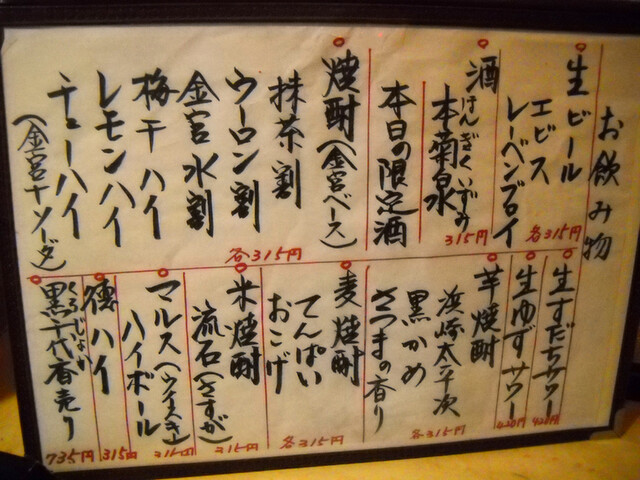 お飲み物
生ビール
エビス
レーベンブロイ
各315円
酒
けんぎくいずみ
本菊泉
315円
本日の限定酒
焼酎(金宮ベース)
抹茶割
ウーロン割
金宮水割
梅干ハイ
レモンハイ
チューハイ
(金宮+ソーダ)
各315円
生すだちサワー
420円
生ゆずサワー
420円
芋焼酎
浜崎太平次
黒かめ
さつまの香り
各315円
麦焼酎
てんぱい
おこげ
各315円
米焼酎
流石(さすが)
315円
マルス(ウイスキー)
ハイボール
315円
徳ハイ
315円
くろじょか
黒千代香売り
735円